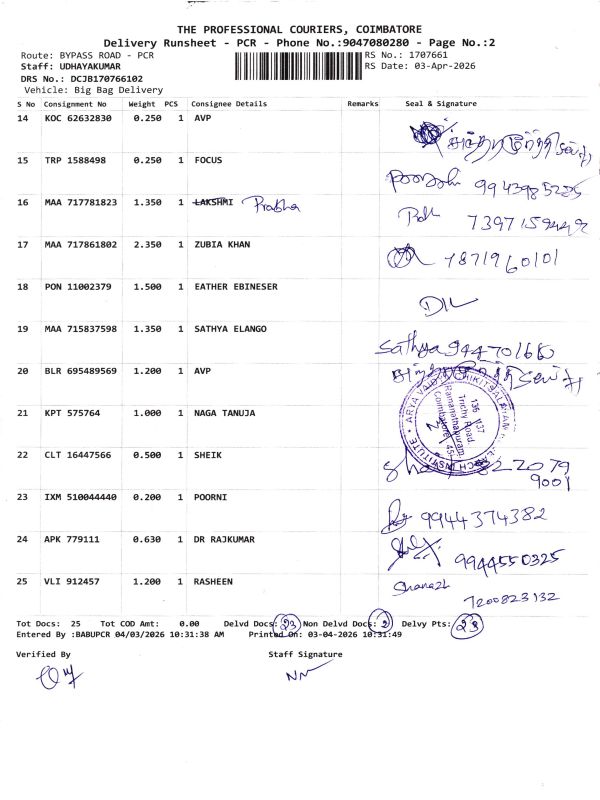 THE PROFESSIONAL COURIERS, COIMBATORE
Delivery Runsheet - PCR - Phone No.:9047080280 - Page No.:2
Route: BYPASS ROAD - PCR RS No.: 1707661
Staff: UDHAYAKUMAR RS Date: 03-Apr-2026
DRS No.: DCJB170766102
Vehicle: Big Bag Delivery
S No Consignment No Weight PCS Consignee Details Remarks Seal & Signature
14 KOC 62632830 0.250 1 AVP
15 TRP 1588498 0.250 1 FOCUS
9943985225
16 MAA 717781823 1.350 1 LAKSHMI Prabha
17 MAA 717861802 2.350 1 ZUBIA KHAN
7871960101
18 PON 11002379 1.500 1 EATHER EBINESER
19 MAA 715837598 1.350 1 SATHYA ELANGO
Sathya
20 BLR 695489569 1.200 1 AVP
21 KPT 575764 1.000 1 NAGA TANUJA
136 137
Trichy Road,
Ramanathapuram,
Coimbatore - 45
22 CLT 16447566 0.500 1 SHEIK
9001
23 IXM 510044440 0.200 1 POORNI
9944374382
24 APK 779111 0.630 1 DR RAJKUMAR
9944550325
25 VLI 912457 1.200 1 RASHEEN
7200823132
Tot Docs: 25 Tot COD Amt: 0.00 Delvd Docs: 23 Non Delvd Docs: 2 Delvy Pts: 23
Entered By :BABUPCR 04/03/2026 10:31:38 AM Printed On: 03-04-2026 10:31:49
Verified By Staff Signature